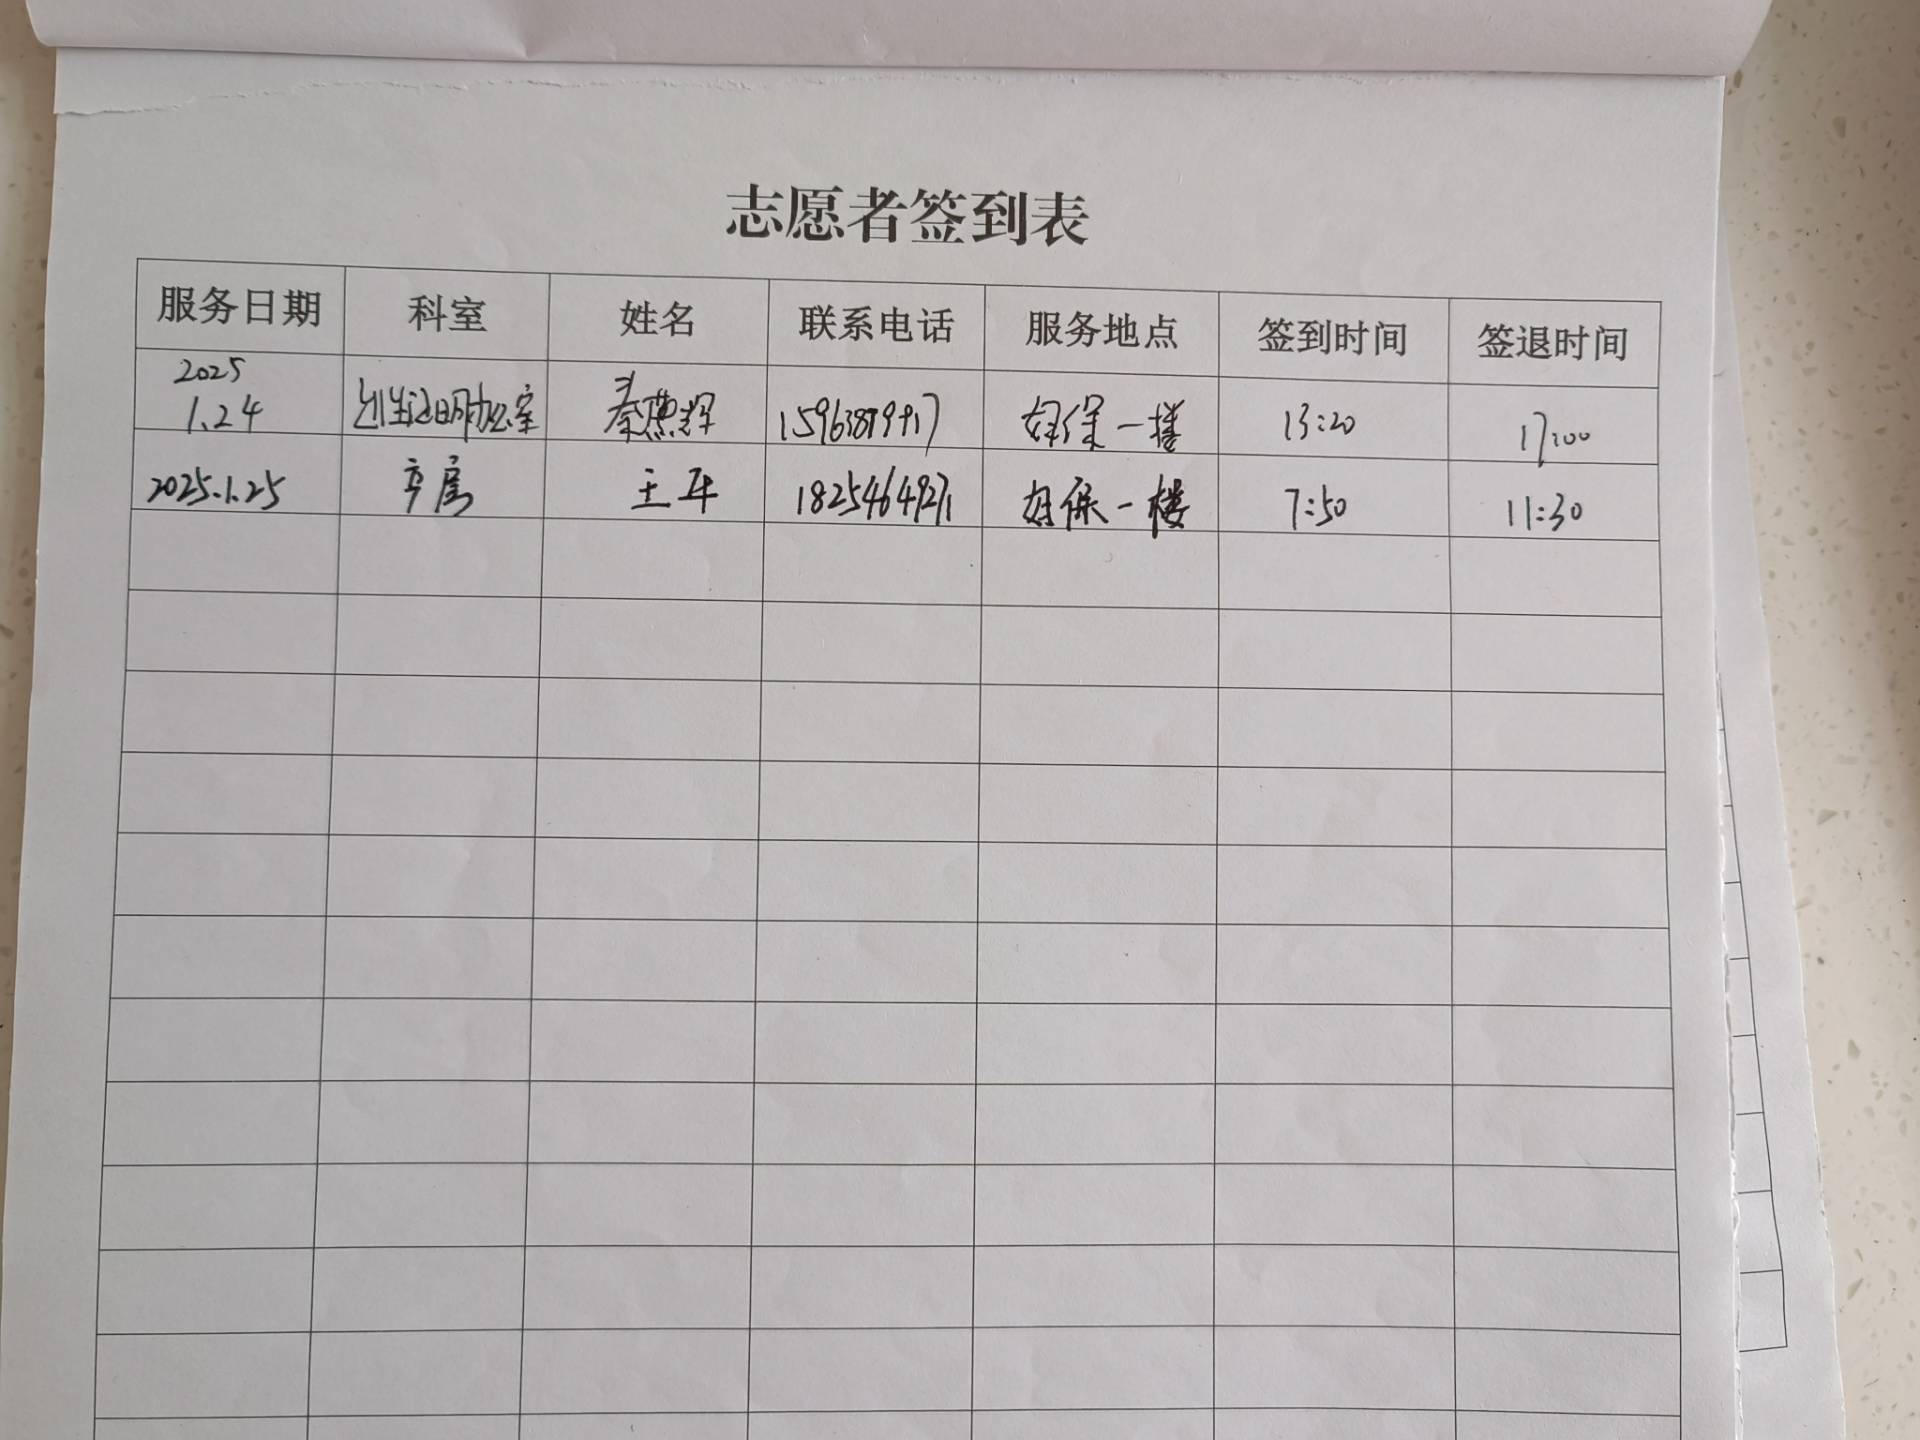 志愿者签到表
服务日期 科室 姓名 联系电话 服务地点 签到时间 签退时间
2025
1.24 出生证明办公室 秦燕辉 妇保一楼 13:20 17:00
2025.1.25 产房 王平 18254649271 妇保一楼 7:50 11:30